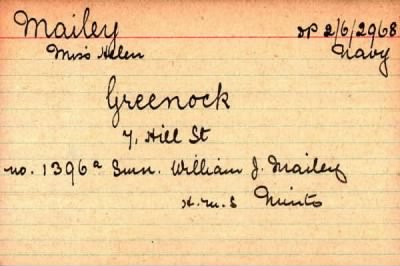 Mailey SP 2/6/2968
Miss Helen Navy
Greenock
7, Hill St
no. 1396a Smn. William J. Mailey
H.M.S Minto